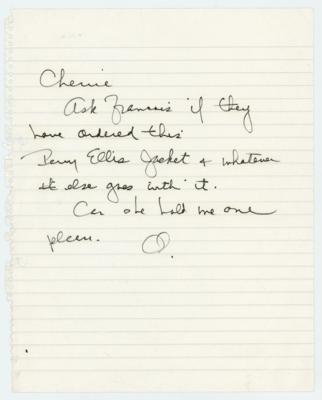 Cherrie
Ask Francois if they
have ordered this
Perry Ellis Jacket & whatever
else goes with it.
Can she hold me one
please.